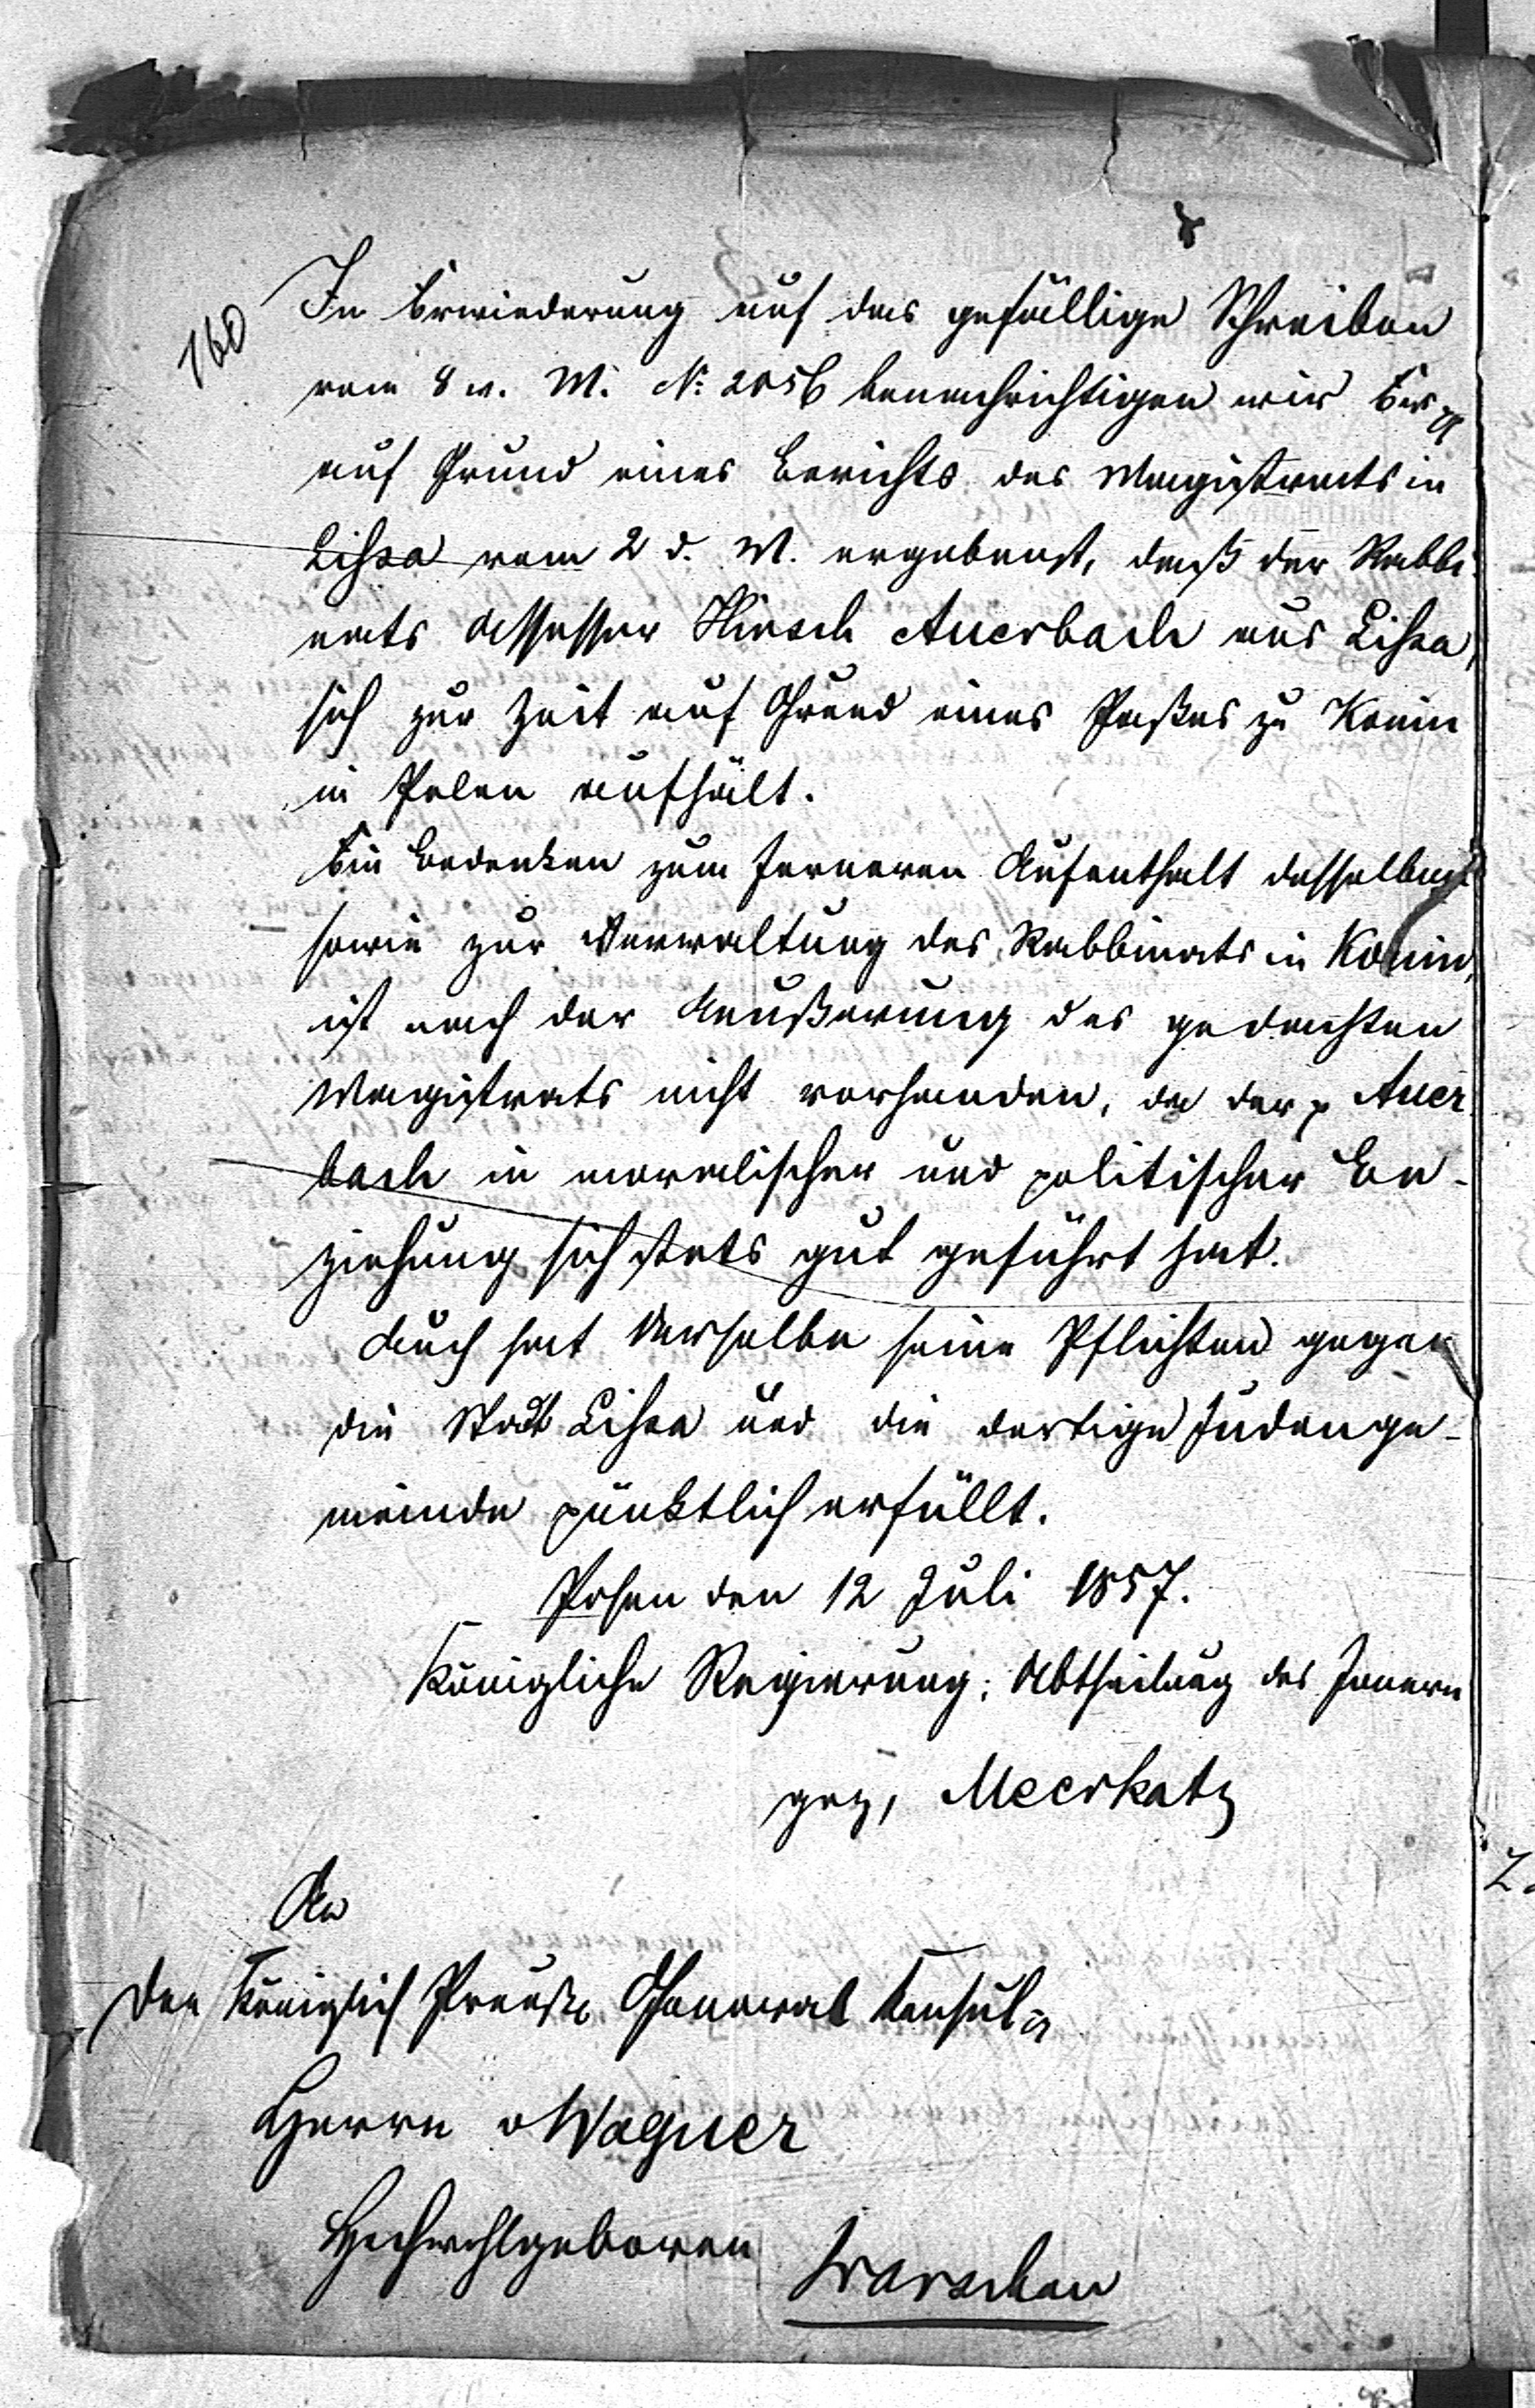 160
In Erwiederung auf das gefällige Schreiben
vom 8 v. M. No: 2056 benachrichtigen wir Ew
auf Grund eines Berichts des Magistrats in
Lissa vom 2 d. M. ergebenst, daß der Rabbi
nats Assessor Hirsch Auerbach aus Lissa,
sich zur Zeit auf Grund eines Paßes zu Konin
in Polen aufhält.
Ein Bedenken zum ferneren Aufenthalt desselben
sowie zur Verwaltung des Rabbinats in Konin,
ist nach der Aeußerung des gedachten
Magistrats nicht vorhanden, da der p Auer
bach in moralischer und politischer Be-
ziehung sich stets gut geführt hat.
Auch hat derselbe seine Pflichten gegen
die Stadt Lissa und die dortige Judenge-
meinde pünktlich erfüllt.
Posen den 12 Juli 1857.
Königliche Regierung; Abtheilung des Innern
gez, Meerkatz
An
den Königlich Preuß General Konsul
Herrn v Wagner
Hochwohlgeboren
Warschau